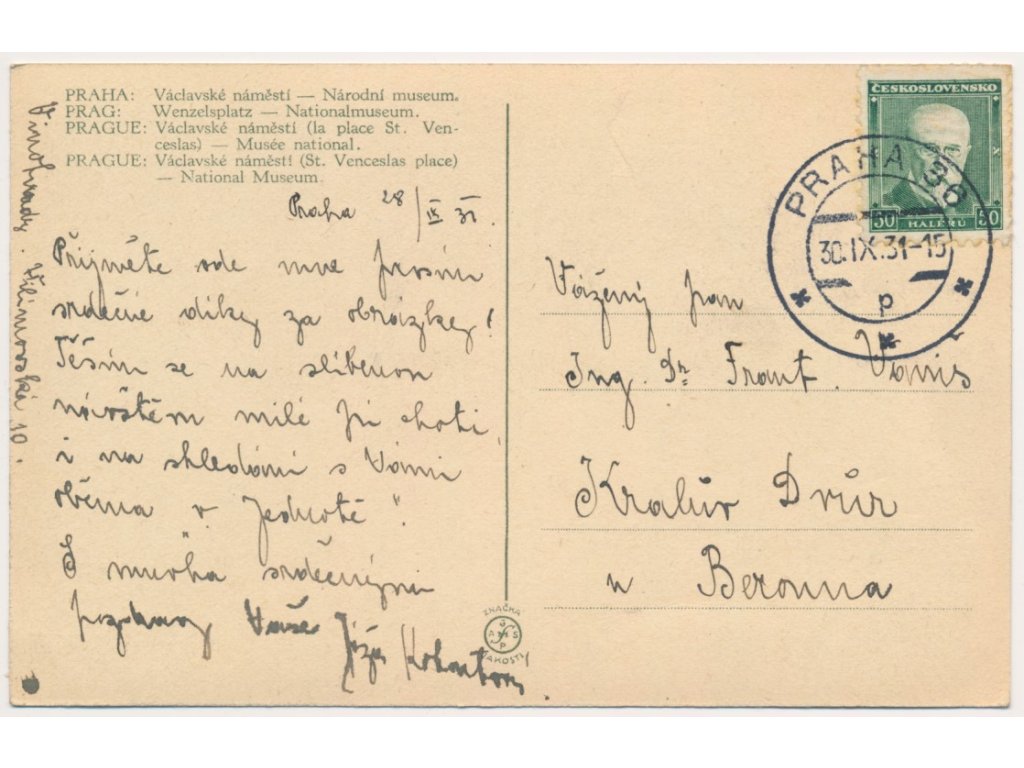 PRAHA: Václavské náměstí — Národní museum.
PRAG: Wenzelsplatz — Nationalmuseum.
PRAGUE: Václavské náměstí (la place St. Ven-
ceslas) — Musée national.
PRAGUE: Václavské náměstí (St. Venceslas place)
— National Museum.
Praha 28/IX 31
Přijměte ode mne prosím
srdečné díky za obrázky!
Těším se na slíbenou
návštěvu milé choti
i na shledání s Vámi
oběma v „Jednotě".
S mnoha srdečnými
pozdravy Vaše
Vinohrady. 10.
ZNAČKA
JAKOSTI
ČESKOSLOVENSKO
50 50
HALÉŘŮ
PRAHA 38
30.IX.31-15
p
Vážený pan
Ing. Dr. Frant. Vaniš
Králův Dvůr
u Berouna